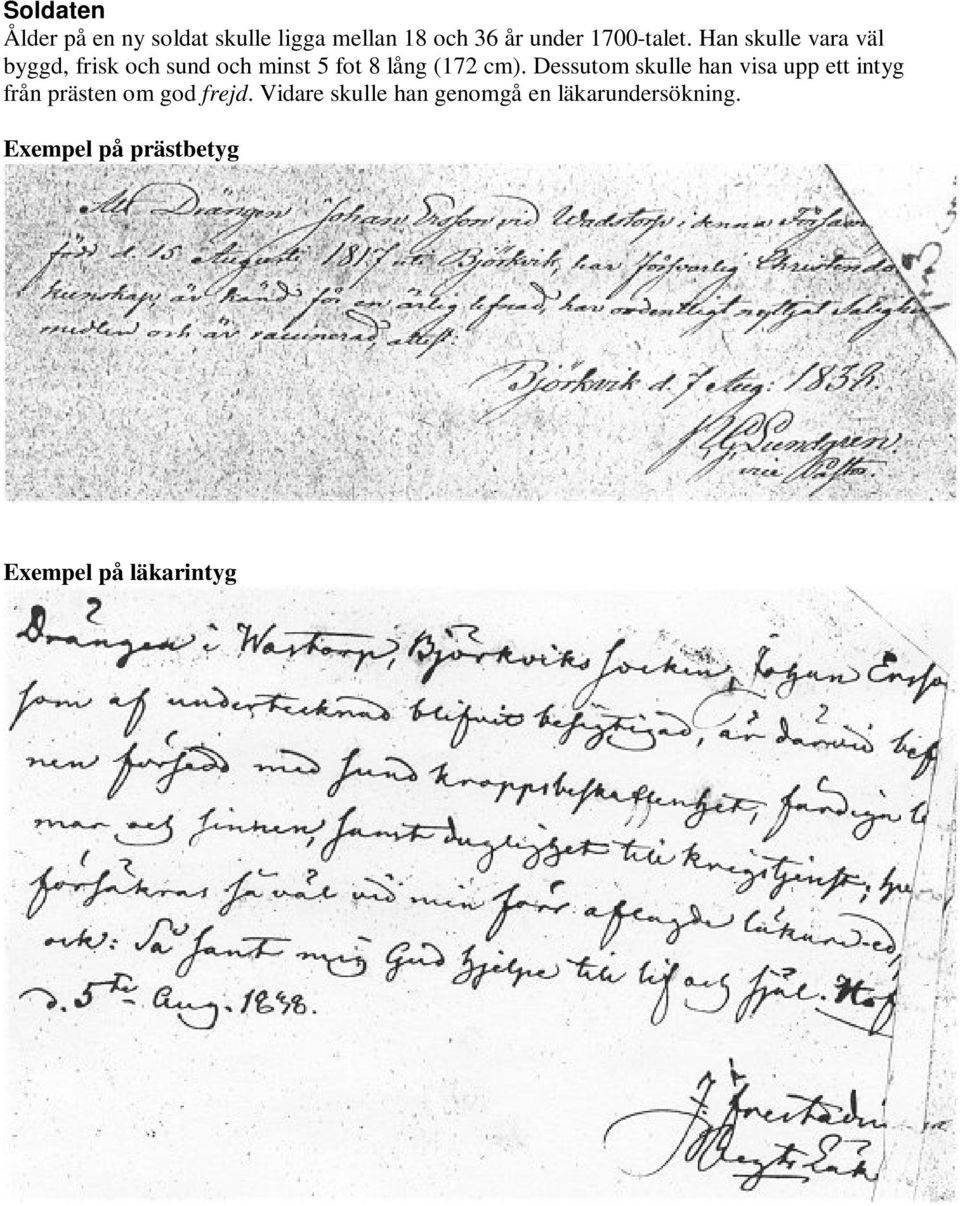 Soldaten
Ålder på en ny soldat skulle ligga mellan 18 och 36 år under 1700-talet. Han skulle vara väl
byggd, frisk och sund och minst 5 fot 8 lång (172 cm). Dessutom skulle han visa upp ett intyg
från prästen om god frejd. Vidare skulle han genomgå en läkarundersökning.
Exempel på prästbetyg
Att Drängen Johan Ersson vid Wadstorp i denna Försam
född d. 15 Augusti 1817 uti Björkvik, har försvarlig Christendo
kunskap, är känd för en ärlig lefnad, har ordentligt nyttjat Saligh
medlen och är vaccinerad, attest:
Björkvik d. 7 Aug: 1838.
Lundgren.
vice Pastor.
Exempel på läkarintyg
Drängen i Wastorp, Björkviks socken, Johan Ersso
som af undertecknad blifvit besigtigad, är därvid bef
nen försedd med sund kroppsbeskaffenhet, färdiga le
mar och sinnen, samt duglighet till krigstjenst,
försäkras så väl vid min förr aflagde läkare-ed,
ock: Så sant mig Gud hjelpe till lif och själ.
d. 5te Aug. 1838.